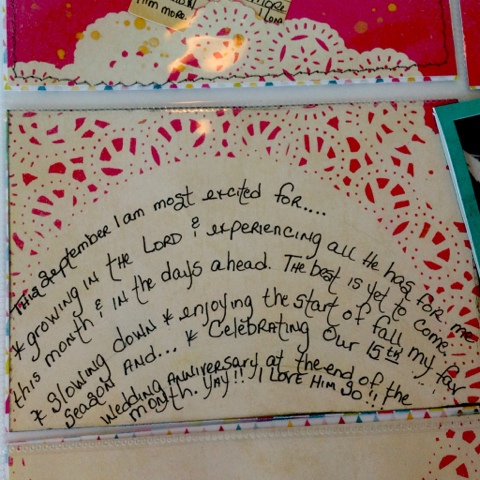 HIM MORE
MORE
I LORD
This September I am most excited for....
* growing in the Lord & experiencing all He has for me
this month & in the days ahead. The best is yet to come.
* slowing down * enjoying the start of fall my fav
season and... * Celebrating Our 15th
wedding anniversary at the end of the
month. YAY!! I LOVE HIM SO!!